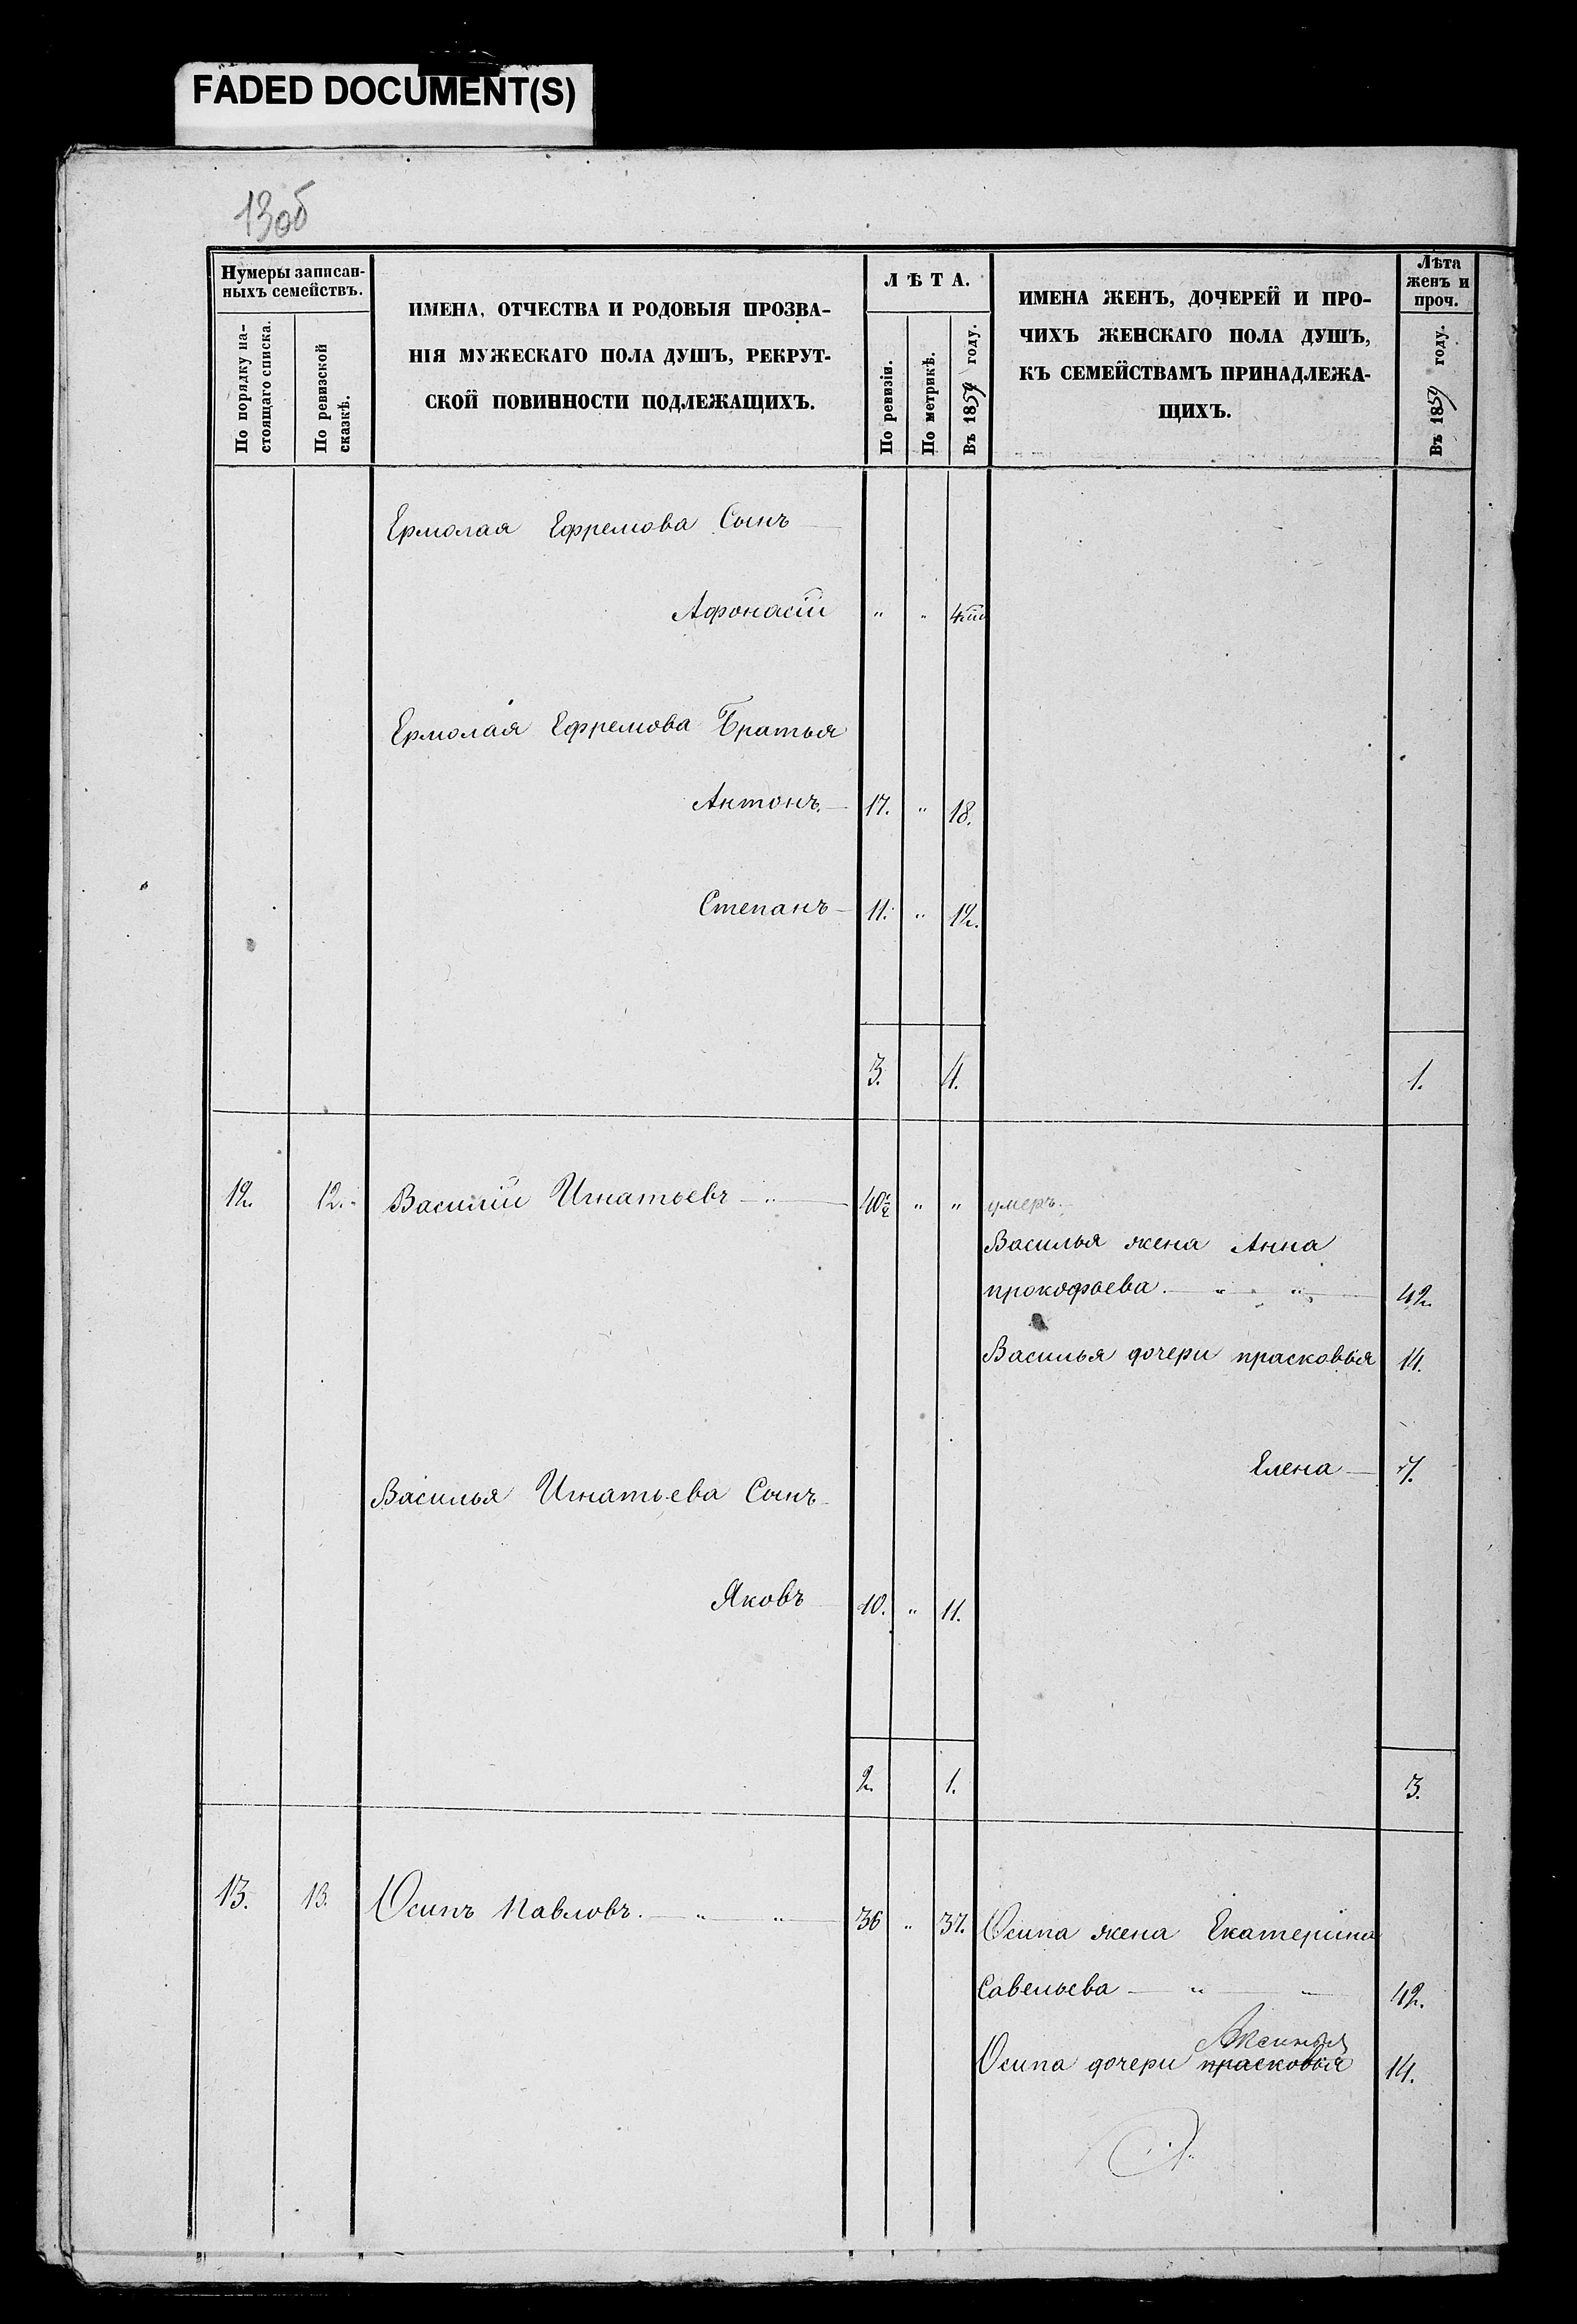 FADED DOCUMENT(S)
13об
Нумеры записан-
ныхъ семействъ.
По порядку на-
стоящаго списка.
По ревизской
сказкѣ.
ИМЕНА, ОТЧЕСТВА И РОДОВЫЯ ПРОЗВА-
НІЯ МУЖЕСКАГО ПОЛА ДУШЪ, РЕКРУТ-
СКОЙ ПОВИННОСТИ ПОДЛЕЖАЩИХЪ.
ЛѢТА.
По ревизіи.
По метрикѣ.
Въ 1859 году.
ИМЕНА ЖЕНЪ, ДОЧЕРЕЙ И ПРО-
ЧИХЪ ЖЕНСКАГО ПОЛА ДУШЪ,
КЪ СЕМЕЙСТВАМЪ ПРИНАДЛЕЖА-
ЩИХЪ.
Лѣта
женъ и
проч.
Въ 1859 году.
Ермолая Ефремова Сынъ
Афонасій " "
Ермолая Ефремова Братья
Антонъ. 17. " 18.
Степанъ 11. " 12.
3. 4. 1.
12. 12. Василій Игнатьевъ " " " умеръ.
Василья жена Анна
прокофьева. " " 42.
Василья дочери прасковья 14.
Елена 7.
Василья Игнатьева Сынъ
Яковъ 10. " 11.
2. 1. 3.
13. 13. Осипъ Павловъ. " " 36 " 37. Осипа жена Екатерина
Савельева " " 42.
Аксинья
Осипа дочери прасковья 14.